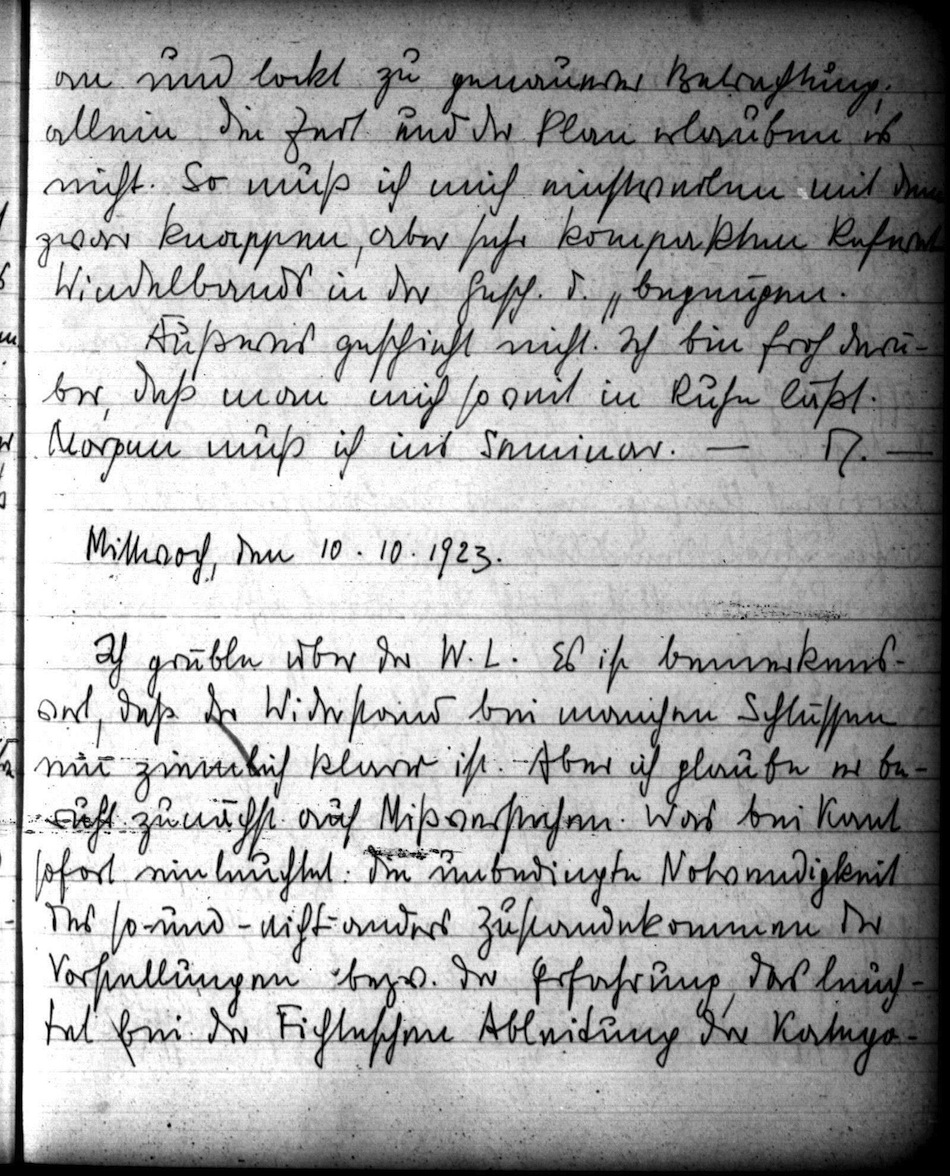 an und lockt zu genauerer Betrachtung;
allein die Zeit und der Plan erlauben es
nicht. So muß ich mich einstweilen mit dem
zwar knappen, aber sehr kompakten Referat
Windelbands in der Gesch. d. „ begnügen.
Äußeres geschieht nicht. Ich bin froh darü-
ber, daß man mich soweit in Ruhe läßt.
Morgen muß ich ins Seminar. —
Mittwoch, den 10. 10. 1923.
Ich grüble über der W. L. Es ist bemerkens-
wert, daß der Widerstand bei manchen Schlüssen
mir ziemlich klar ist. Aber ich glaube er be-
ruht zunächst auf Mißverstehen. Was bei Kant
sofort einleuchtet: die unbedingte Notwendigkeit
des so-und-nicht-anders Zustandekommen der
Vorstellungen bezw. der Erfahrung, das leuch-
tet bei der Fichteschen Ableitung der Katego-